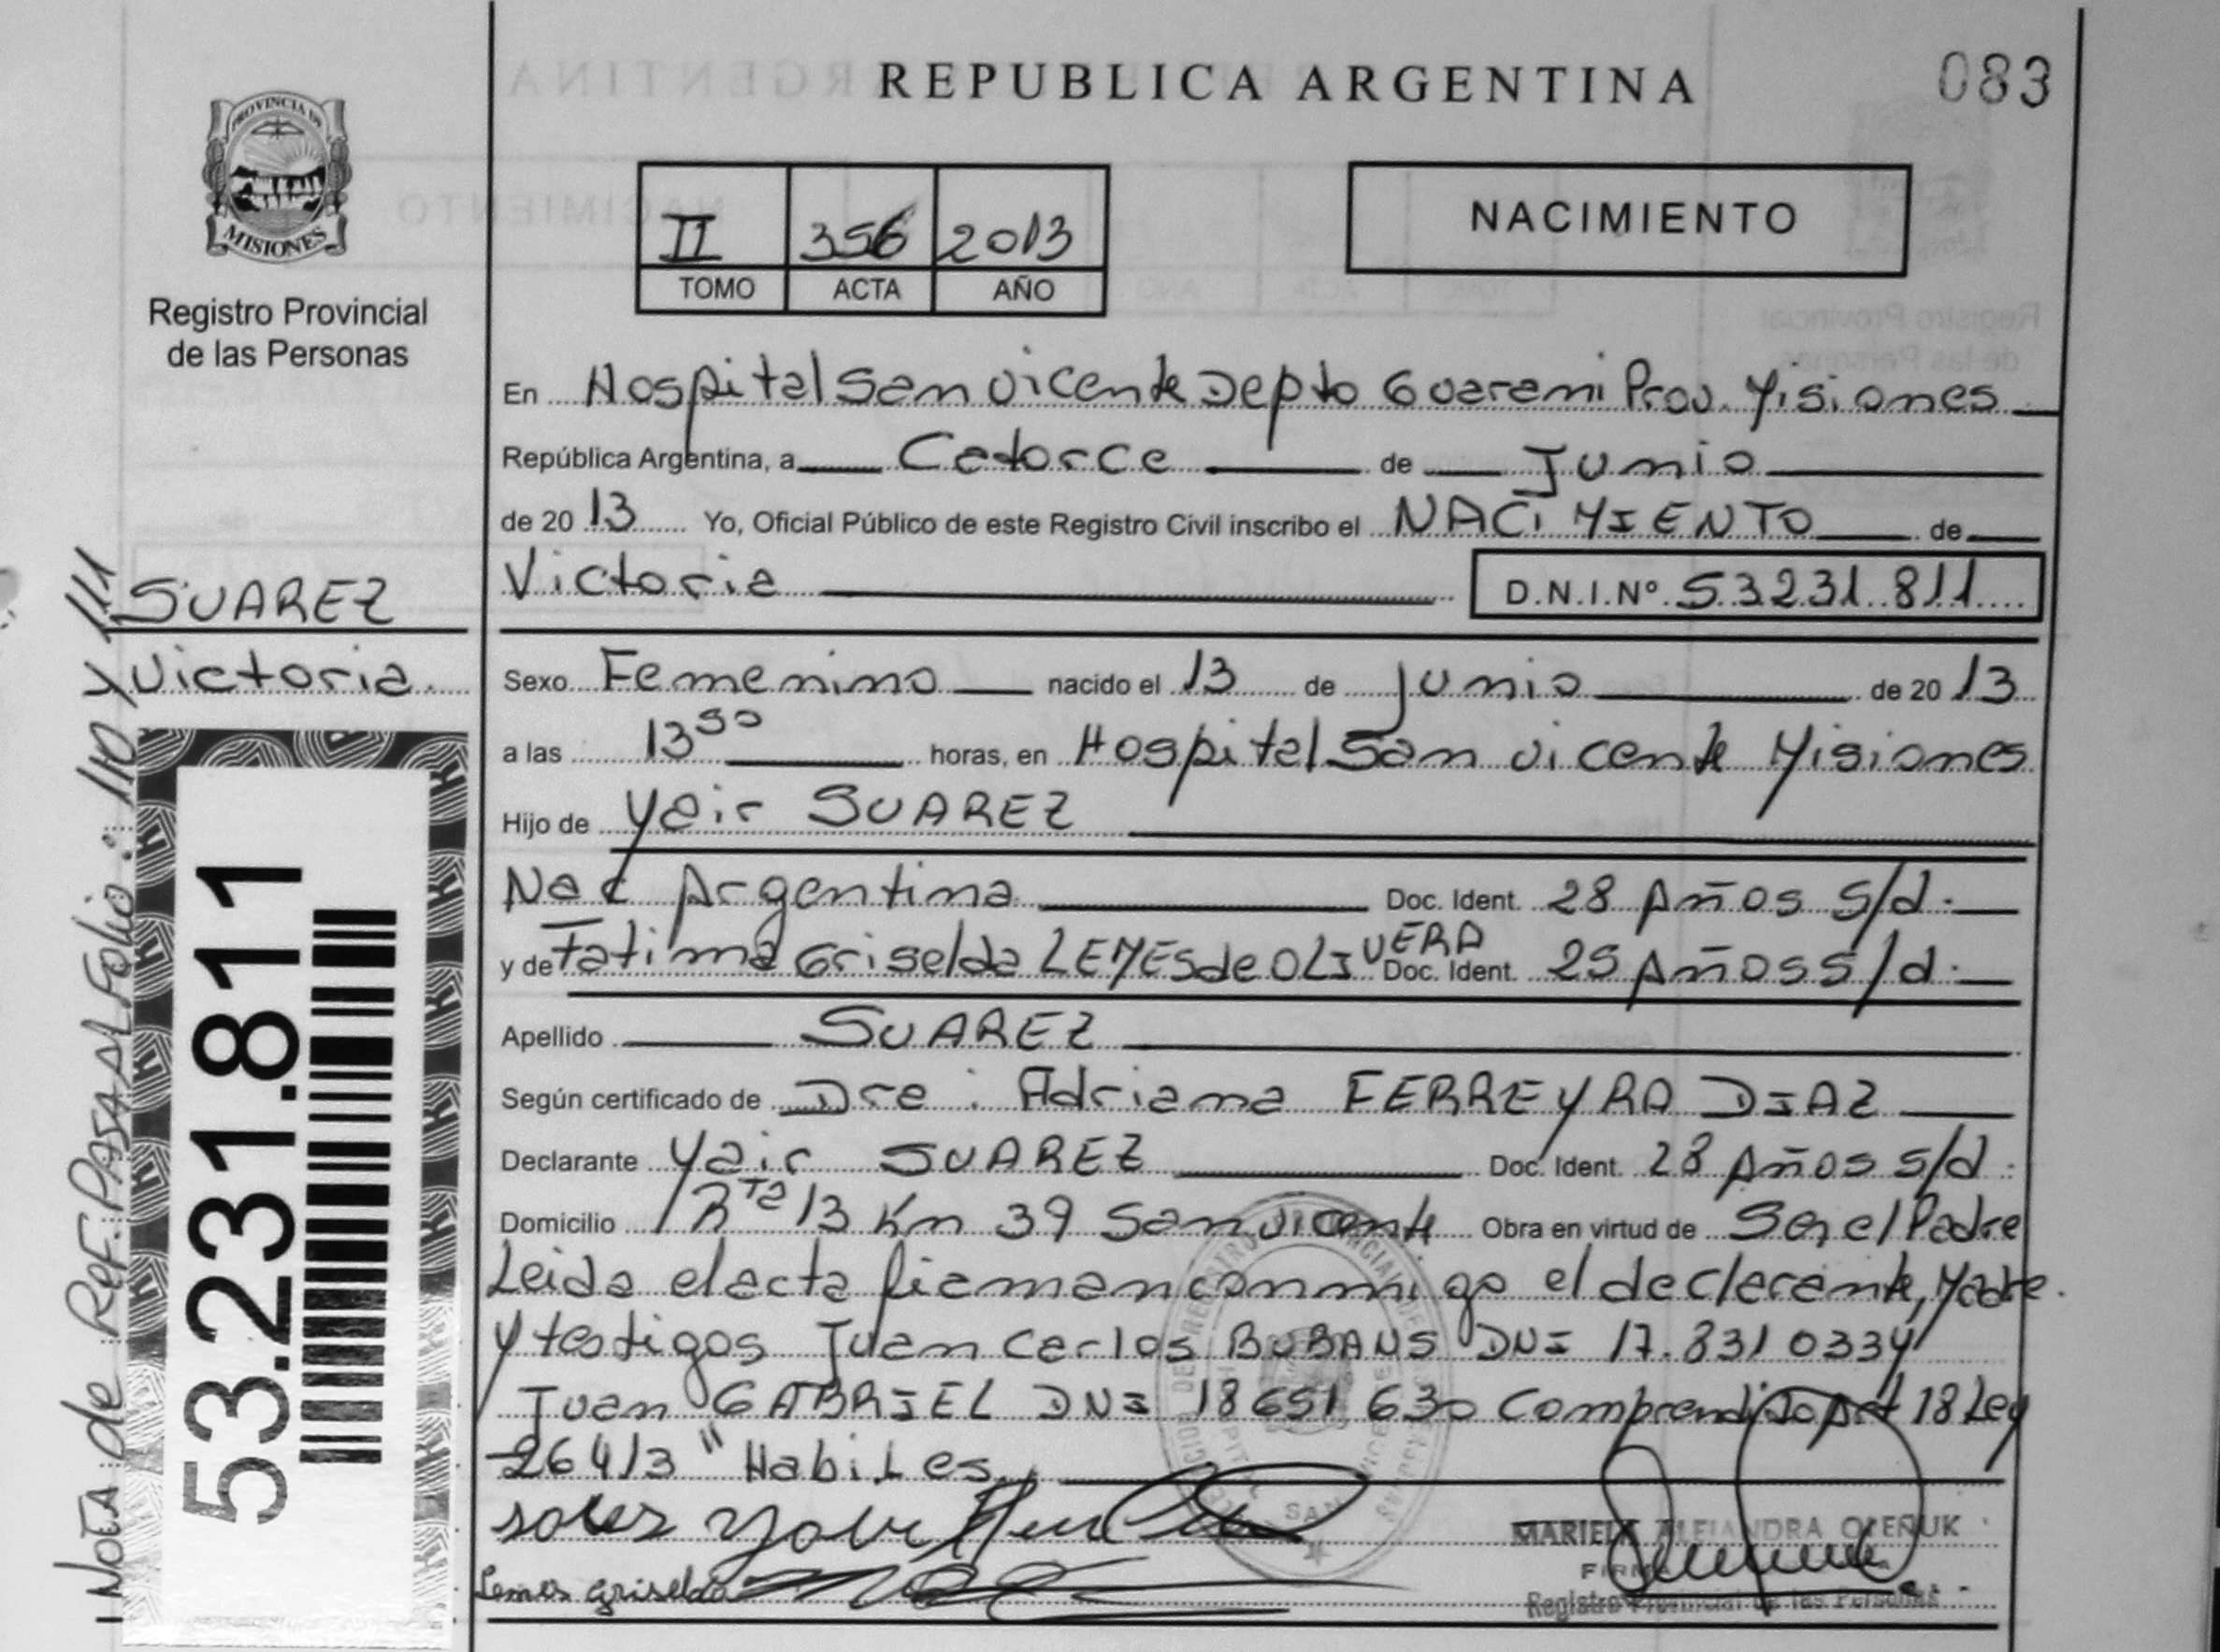 REPUBLICA ARGENTINA
083
PROVINCIA DE
MISIONES
Registro Provincial
de las Personas
II 356 2013
TOMO ACTA AÑO
NACIMIENTO
En Hospital San Vicente Depto Guarani Prov. Misiones
República Argentina, a Catorce de Junio
de 20 13 Yo, Oficial Público de este Registro Civil inscribo el NACIMIENTO de
Victoria D.N.I.Nº 53231811
SUAREZ
Victoria
Sexo Femenino nacido el 13 de Junio de 20 13
a las horas, en Hospital San Vicente Misiones
Hijo de Yair SUAREZ
Nac Argentina Doc. Ident. 28 Años s/d.
y de Fatima Griselda LEMES de OLIVERA Doc. Ident. 25 Años s/d.
Apellido SUAREZ
Según certificado de Dra: Adriana FERREYRA DIAZ
Declarante Yair SUAREZ Doc. Ident. 28 Años s/d.
Domicilio Rta 13 Km 39 San Vicente Obra en virtud de Ser el Padre
Leida el acta firman conmigo el declarante, Madre
y testigos Juan Carlos DNI
Juan GABRIEL DNI 18651630 Comprendido Art 18 Ley
26413 " Habiles
Lemes Griselda
MARIELA ALEJANDRA OLEÑUK
FIRMA
Registro Provincial de las Personas
NOTA de REF. PASA AL Folio: 110 y 111
53.231.811